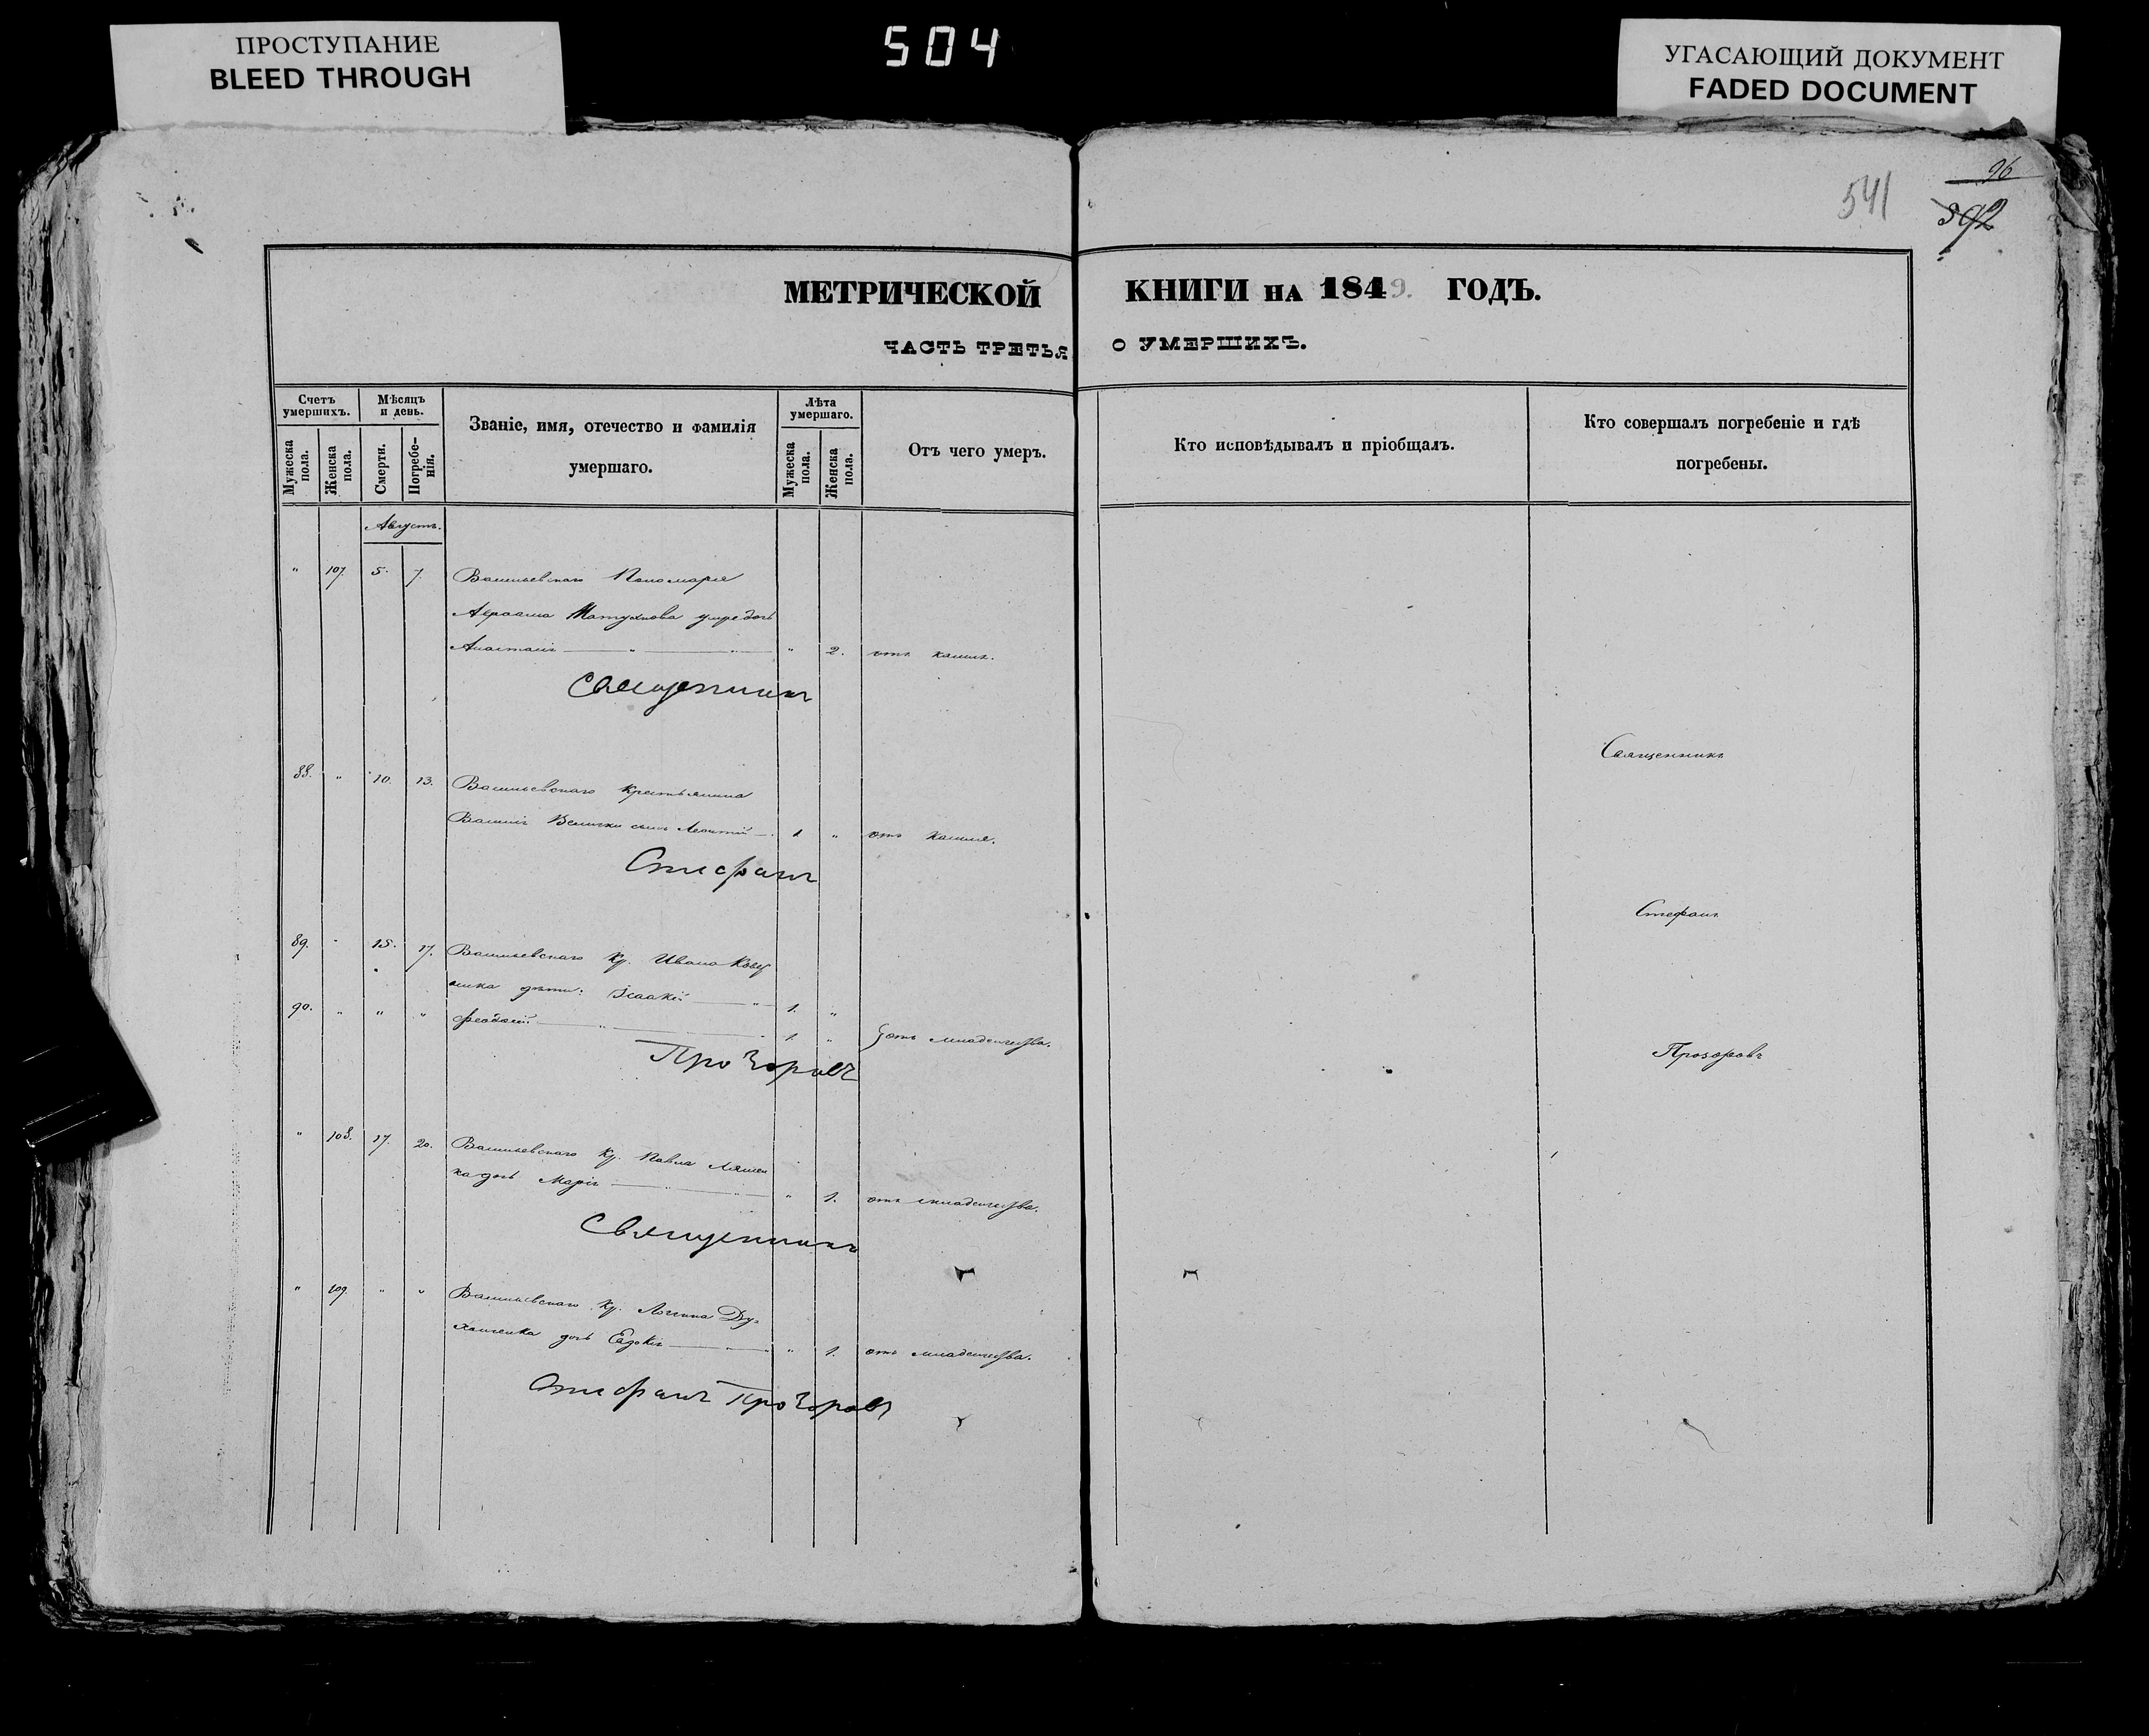 ПРОСТУПАНИЕ
BLEED THROUGH
504
УГАСАЮЩИЙ ДОКУМЕНТ
FADED DOCUMENT
96
541
592
МЕТРИЧЕСКОЙ КНИГИ НА 1849. ГОДЪ.
ЧАСТЬ ТРЕТЬЯ О УМЕРШИХЪ.
Счетъ умершихъ.
Мѣсяцъ и день.
Званіе, имя, отечество и фамилія умершаго.
Лѣта умершаго.
Отъ чего умеръ.
Кто исповѣдывалъ и пріобщалъ.
Кто совершалъ погребеніе и гдѣ погребены.
Мужеска пола.
Женска пола.
Смерти.
Погребенія.
Мужеска пола.
Женска пола.
Августъ.
" 107. 5. 7. Васильевскаго Пономаря
Авраама умре дочь
Анастасія " " " 2. отъ кашля.
Священникъ
Священникъ
88. " 10. 13. Васильевскаго Крестьянина
Василія Велички сынъ Леонтій 1 " отъ кашля.
Стефанъ
Стефанъ
89. " 15. 17. Васильевскаго Кр. Ивана
дѣти: Ісаакій " 1. "
90. " " " Феодосій " 1. " отъ младенчества.
Прозоровъ
Прозоровъ
" 108. 17. 20. Васильевскаго Кр. Павла Ляшен
ка дочь Марія " " " 1. отъ младенчества.
Священникъ
" 109. " " Васильевскаго Кр. Логина Ду-
ханенка дочь Евдокія " " " 1. отъ младенчества.
Стефанъ Прозоровъ